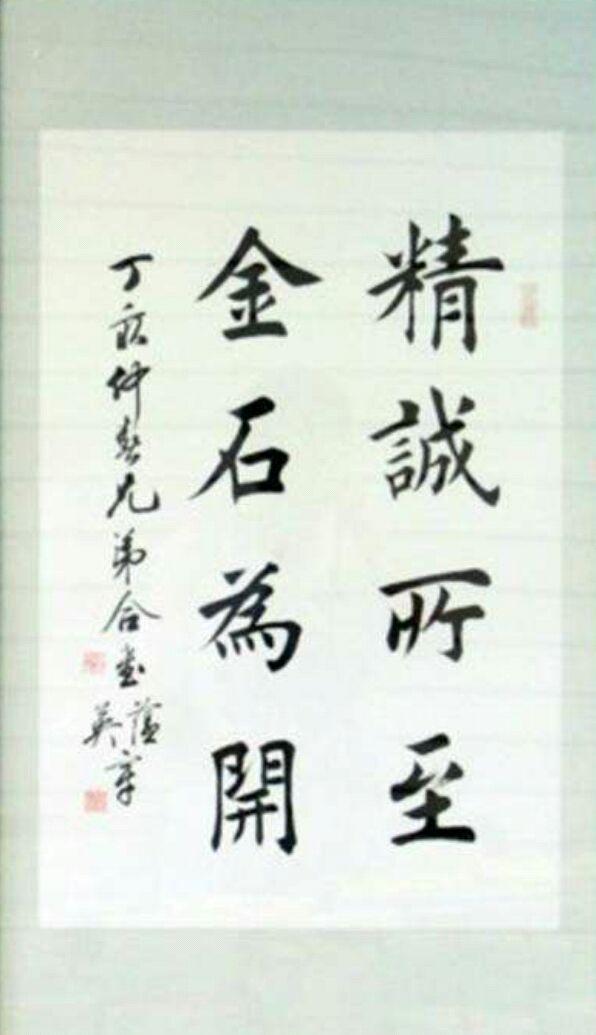 精誠所至
金石為開
丁亥仲春兄弟合書